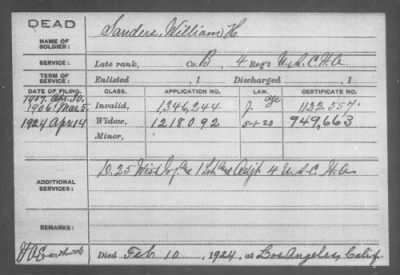 DEAD
NAME OF SOLDIER: Sanders, William H
SERVICE: Late rank, Co. B, 4 Reg't U.S.C.H.A
TERM OF SERVICE: Enlisted , 1 Discharged , 1
DATE OF FILING. CLASS. APPLICATION NO. LAW. CERTIFICATE NO.
1907. Apr. 30. age
1906. Mar. 5. Invalid, 1346,244 1132.557.
1924 Apr 14 Widow, 1218092 5-1-20 949,663
Minor,
ADDITIONAL SERVICES: D. 25 Adjt 4 U.S.C.H.A.
REMARKS:
Died Feb 10, 1924, at Los Angeles, Calif.